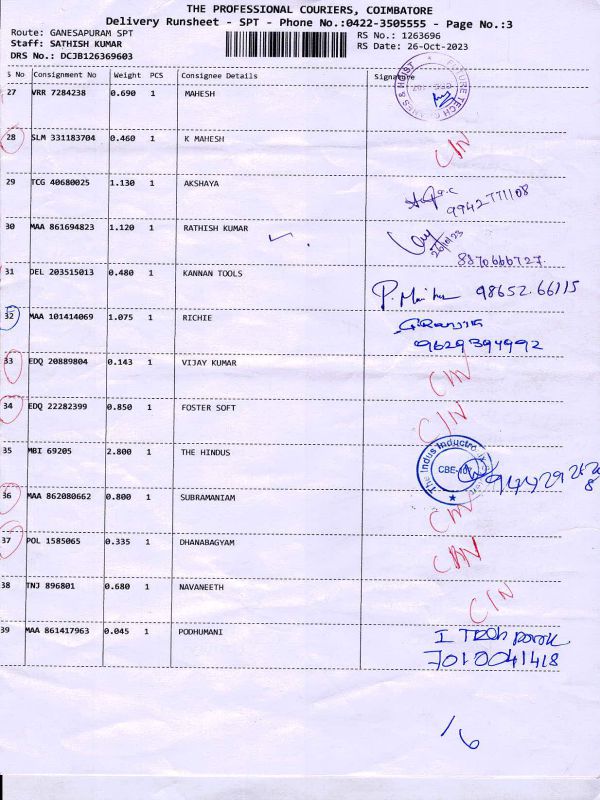 THE PROFESSIONAL COURIERS, COIMBATORE
Delivery Runsheet - SPT - Phone No.:0422-3505555 - Page No.:3
Route: GANESAPURAM SPT
Staff: SATHISH KUMAR
DRS No.: DCJB126369603
RS No.: 1263696
RS Date: 26-Oct-2023
S No Consignment No Weight PCS Consignee Details Signature
27 VRR 7284238 0.690 1 MAHESH
28 SLM 331183704 0.460 1 K MAHESH C/N
29 TCG 40680025 1.130 1 AKSHAYA
9942771108
30 MAA 861694823 1.120 1 RATHISH KUMAR
26/10/23
8870666727
31 DEL 203515013 0.480 1 KANNAN TOOLS 98652.66115
32 MAA 101414069 1.075 1 RICHIE
9629394992
33 EDQ 20889804 0.143 1 VIJAY KUMAR C/N
34 EDQ 22282399 0.850 1 FOSTER SOFT C/N
35 MBI 69205 2.800 1 THE HINDUS
The Indus
36 MAA 862080662 0.800 1 SUBRAMANIAM C/N
37 POL 1585065 0.335 1 DHANABAGYAM C/N
38 TNJ 896801 0.680 1 NAVANEETH C/N
39 MAA 861417963 0.045 1 PODHUMANI I Tech park
7010041418